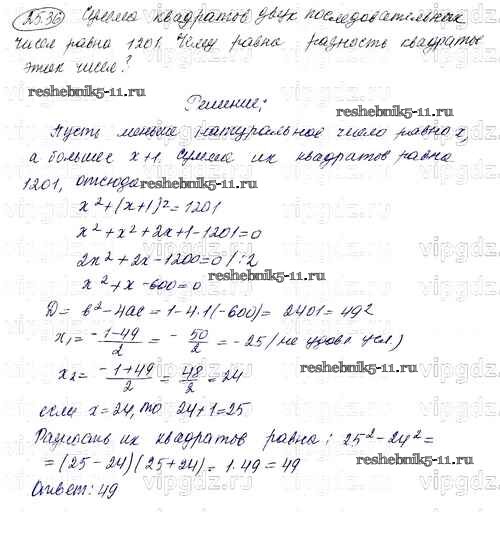 25.36 Сумма квадратов двух последовательных
чисел равна 1201. Чему равна разность квадратов
этих чисел?
reshebnik5-11.ru
Решение:
reshebnik5-11.ru
Пусть меньшее натуральное число равно x,
а большее x+1. Сумма их квадратов равна
1201, отсюда
reshebnik5-11.ru
x²+(x+1)²=1201
x²+x²+2x+1-1201=0
2x²+2x-1200=0 /:2
x²+x-600=0
reshebnik5-11.ru
D= b²-4ac=1-4·1(-600)= 2401=49²
x₁= -1-49/2 = - 50/2 = -25 (не удовл усл.)
x₂= -1+49/2 = 48/2 = 24
reshebnik5-11.ru
если x=24, то 24+1=25
Разность их квадратов равна: 25²-24²=
=(25-24)(25+24)= 1·49=49
reshebnik5-11.ru
Ответ: 49
vipgdz